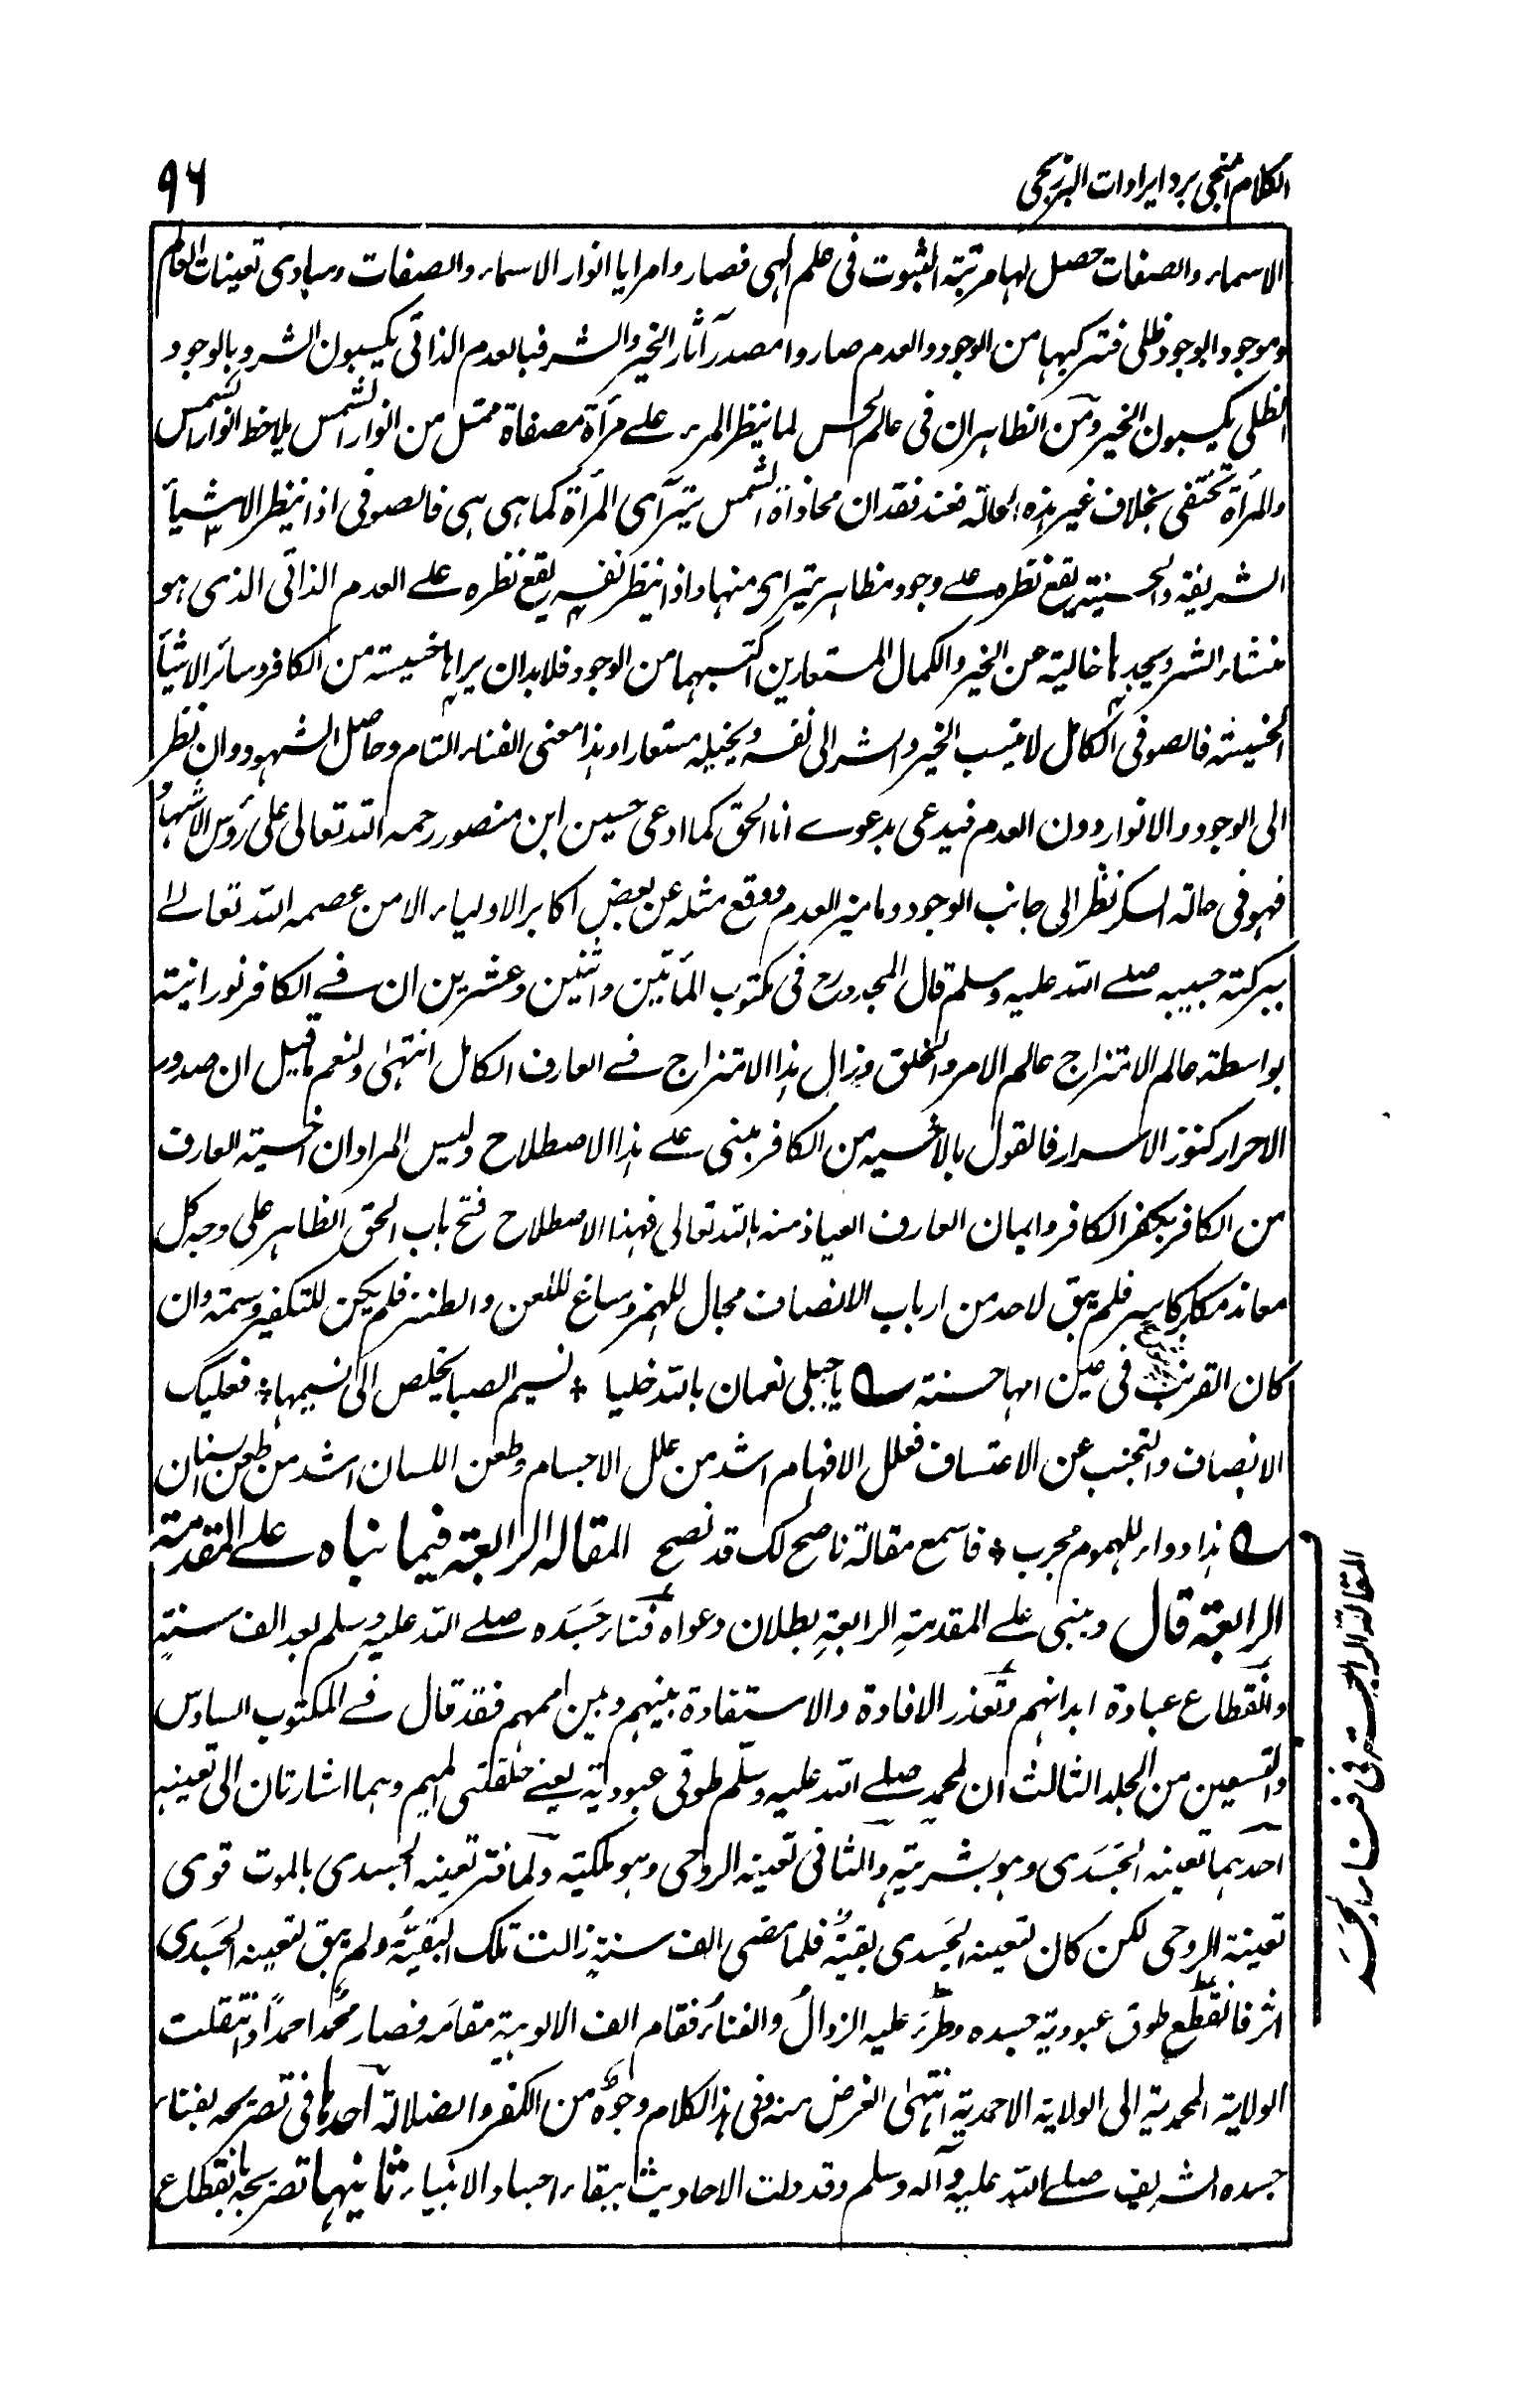 الكلام المنجي برد ايرادات البرزنجي
٩٦
الاسماء والصفات حصل لها مرتبة الثبوت فى علم الهى فصاروا مرايا انوار الاسماء والصفات ومبادى تعينات العالم
وموجود ابوجود ظلى فتركبها من الوجود والعدم صاروا مصدر آثار الخير والشر فبالعدم الذاتى يكسبون الشر وبالوجود
الظلى يكسبون الخير ومن الظاهر ان فى عالم الحس لما ينظر المرء على مرأة مصفاة ممتل من انوار الشمس يلاحظ انوار الشمس
والمرأة تختفى بخلاف غير هذه الحالة فعند فقدان محاذاة الشمس يترآى المرأة كما هى هى فالصوفى اذا ينظر الاشياء
الشريفة والحسنية يقع نظره على وجود مظاهر يترا ى منها واذا ينظر نفسه يقع نظره على العدم الذاتى الذى هو
منشاء الشر ويجدها خالية عن الخير والكمال المستعارين اكتسبهما من الوجود فلا بد ان يراها خسيسة من الكافر وسائر الاشياء
الخسيسة فالصوفى الكامل لا ينسب الخير والشر الى نفسه ويخيله مستعارا وهذا معنى الفناء التام وحاصل الشهود وان نظر
الى الوجود والانوار دون العدم فيدعى بدعوے انا الحق كما ادعى حسين ابن منصور رحمه الله تعالى على رؤس الاشهاد
فهو فى حالة السكر نظر الى جانب الوجود وما ميز العدم ووقع مثله عن بعض اكابر الاولياء الا من عصمه الله تعالے
ببركة حبيبه صلے الله عليه وسلم قال المجدد رح فى مكتوب المأتين واثنين وعشرين ان فے الكافر نورانية
بواسطة عالم الامتزاج عالم الامر والخلق وزال هذا الامتزاج فے العارف الكامل انتهىٰ ولنعم ما قيل ان صدور
الاحرار كنوز الاسرار فالقول بالاخسية من الكافر مبنى علے هذا الاصطلاح وليس المراد ان اخسية العارف
من الكافر بكفر الكافر وايمان العارف العياذ منه بالله تعالى فهذا الاصطلاح فتح باب الحق الظاهر على وجه كل
معاند مكابر كاسر فلم يبق لاحد من ارباب الانصاف مجال للهمز ومساغ للعن والطنز فلم يكن للتكفير وسمة وان
كان القرنب فى عين امها حسنة ؎ ياجبلى نعمان بالله خليا * نسيم الصبا يخلص الىّ نسيمها * فعليك
الانصاف والتجنب عن الاعتساف فعلل الافهام اشد من علل الاجسام وطعن اللسان اشد من طعن السنان
؎ هذا دواء للهموم مجرب * فاسمع مقالة ناصح لك قد نصح المقالة الرابعة فيما بناه علے المقدمة
الرابعة قال وينبى علے المقدمةِ الرابعةِ بطلان دعواه فناء جَسَدَه صلے الله عليه وسلم بعد الف سنةٍ
وانقطاع عبادة ابدانهم وتعذر الافادة والاستفادة بينهم وبين اممهم فقد قال فے المكتوب السادس
والتسعين من الجلد الثالث ان لمحمد صلے الله عليه وسلم طوقى عبودية يعنے حلقتى الميم وهما اشارتان الى تعينيه
احدهما تعينه الجَسَدى وهو بشريته والثانى تعينه الروحى وهو ملكيته ولما فتر تعينه الجسدى بالموت قوى
تعينة الروحى لكن كان لتعينه الجَسدى بقيةٌ فلما مضى الف سنةٍ زالت تلك البقيةُ ولم يبق لتعينه الجَسَدى
اثر فانقطع طوق عبودية جسده وطرَءَ عليه الزوالُ والفناءُ فقام الف الالوهية مقامَه فصار محمد احمدًا وانتقلت
الولاية المحمدية الى الولاية الاحمدية انتهىٰ الغرض منه وفى هذا الكلام وجوهٌ من الكفر والضلالة احدها فى تصريحه بفناء
جسده الشريف صلے الله عليه وآله وسلم وقد دلت الاحاديث ببقاء اجساد الانبياء ثانيها تصريحه بانقطاع
المقالة الرابعة فى فناء الجسد